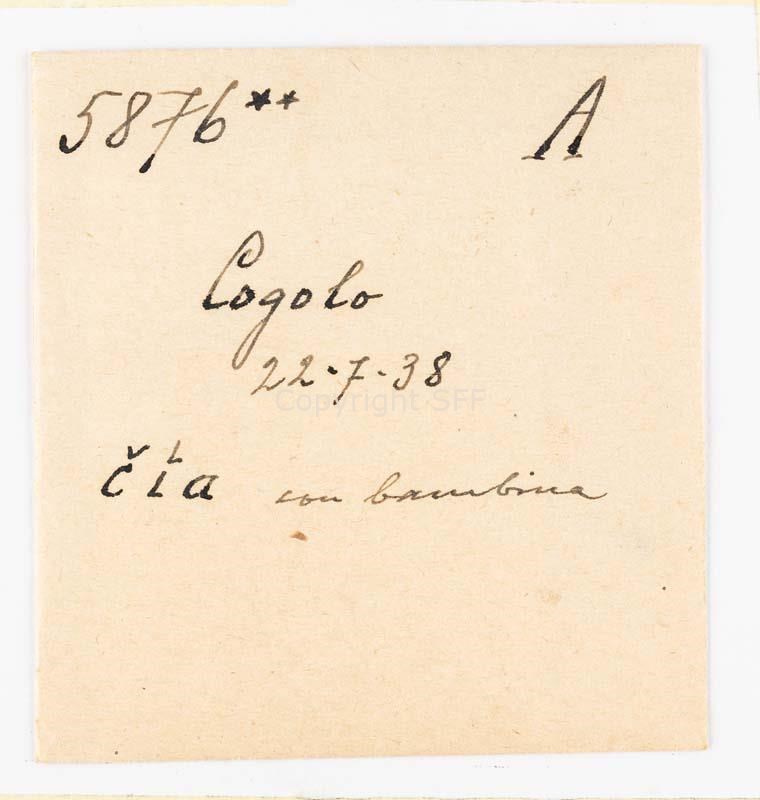 5876** A
Cogolo
22-7-38
Copyright SFF
con bambina